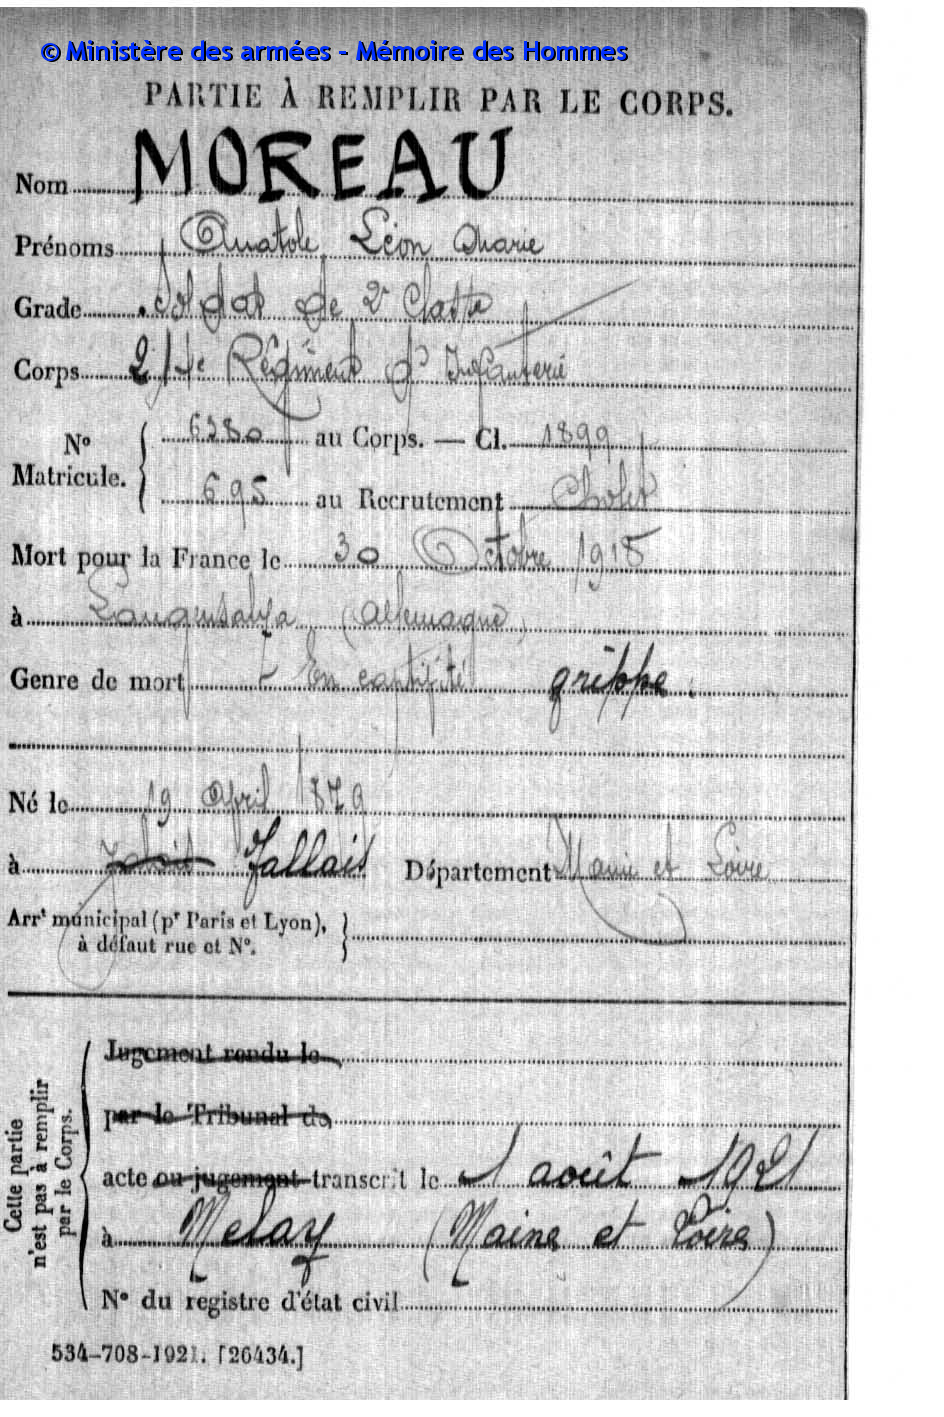 © Ministère des armées - Mémoire des Hommes
PARTIE À REMPLIR PAR LE CORPS.
Nom MOREAU
Prénoms Anatole Léon Marie
Grade Soldat de 2e Classe
Corps Régiment d'Infanterie
N° Matricule. { 6380 au Corps. — Cl. 1899
695 au Recrutement Cholet
Mort pour la France le 30 Octobre 1918
à Langensalza (Allemagne)
Genre de mort En captivité grippe.
Né le 19 April 1879
à Jallais Département Maine et Loire
Arrt municipal (pr Paris et Lyon),
à défaut rue et N°.
Cette partie n'est pas à remplir par le Corps.
Jugement rendu le
par le Tribunal de
acte ou jugement transcrit le 1 août 1921
à Melay (Maine et Loire)
N° du registre d'état civil
534-708-1921. [26434.]